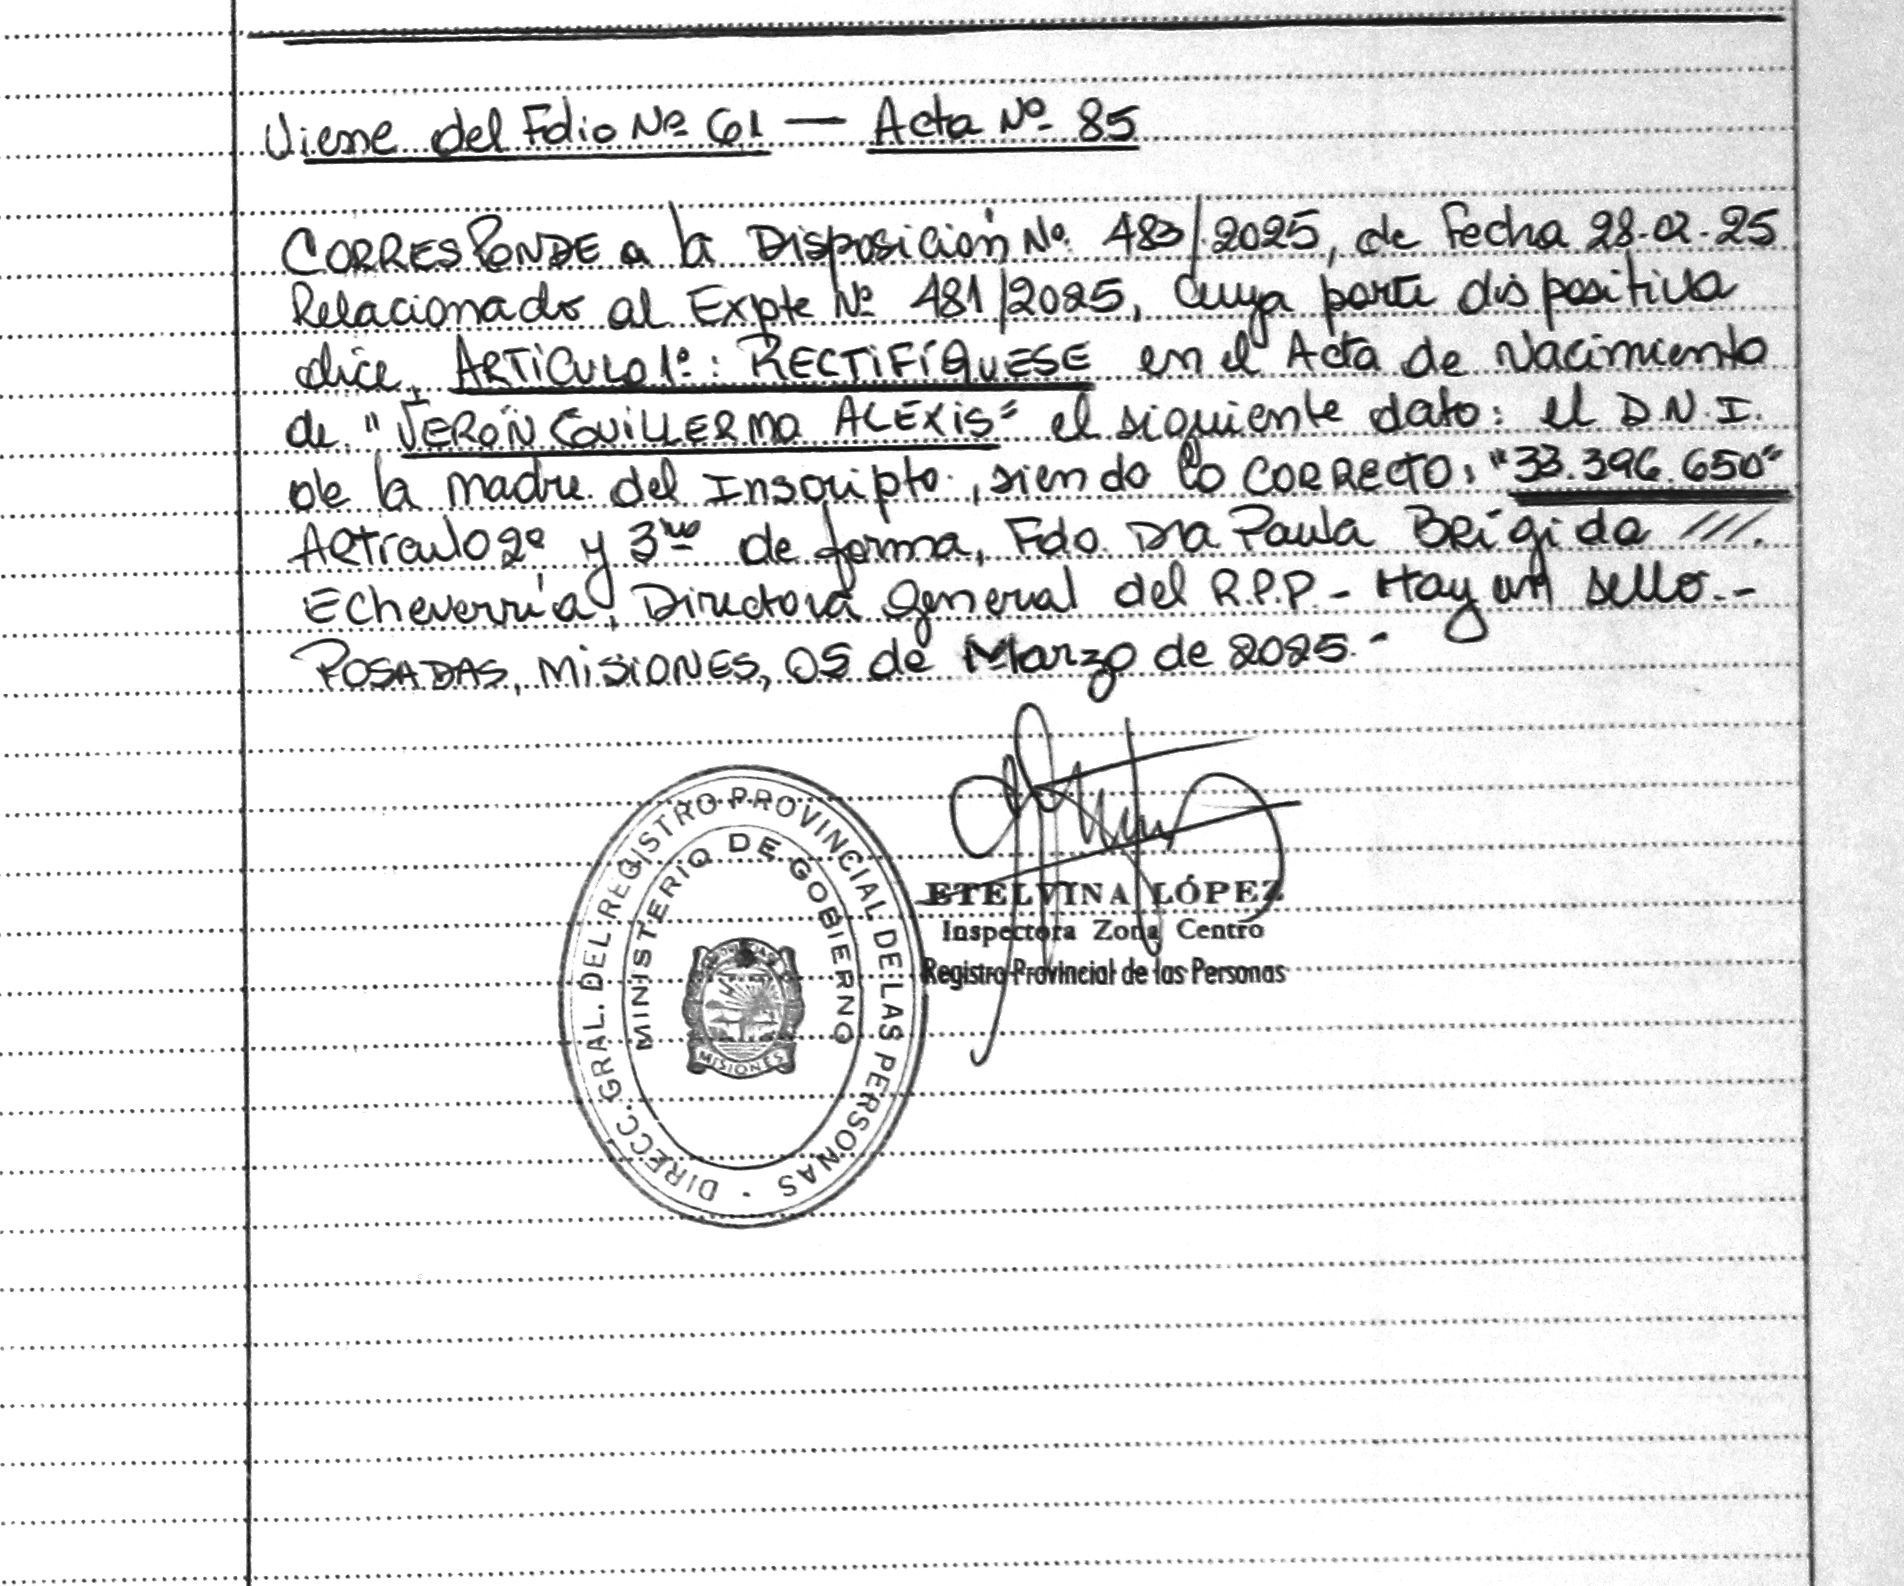 Viene del Folio Nº 61 — Acta Nº 85
CORRESPONDE a la Disposición Nº 483/2025, de Fecha 28-02-25
Relacionado al Expte Nº 481/2025, cuya parte dispositiva
dice, ARTÍCULO 1º: RECTIFÍQUESE en el Acta de Nacimiento
de "VERÓN GUILLERMO ALEXIS" el siguiente dato: el D.N.I.
de la madre del Inscripto, siendo lo CORRECTO: "33.396.650"
Artículo 2º y 3ro de forma, Fdo. Dra Paula Brígida ///.
Echeverría, Directora General del R.P.P - Hay un sello.-
POSADAS, MISIONES, 05 de Marzo de 2025.-
DIRECC. GRAL. DEL REGISTRO PROVINCIAL DE LAS PERSONAS
MINISTERIO DE GOBIERNO
MISIONES
ETELVINA LÓPEZ
Inspectora Zona Centro
Registro Provincial de las Personas